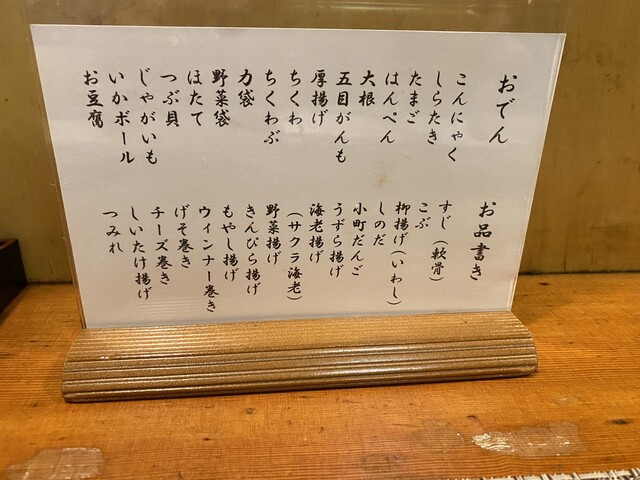 おでん　お品書き
こんにゃく
しらたき
たまご
はんぺん
大根
五目がんも
厚揚げ
ちくわ
ちくわぶ
力袋
野菜袋
ほたて
つぶ貝
じゃがいも
いかボール
お豆腐
すじ（軟骨）
こぶ
柳揚げ（いわし）
しのだ
小町だんご
うずら揚げ
海老揚げ
（サクラ海老）
野菜揚げ
きんぴら揚げ
もやし揚げ
ウィンナー巻き
げそ巻き
チーズ巻き
しいたけ揚げ
つみれ